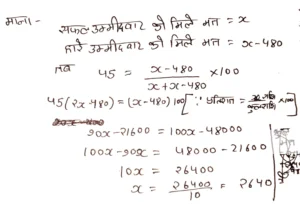 माना - सफल उम्मीदवार को मिले मत = x
हारे उम्मीदवार को मिले मत = x-480
तब 45 = x-480 / x+x-480 ×100
45(2x-480) = (x-480)100 [∵ प्रतिशत =
90x-21600 = 100x-48000
100x-90x = 48000-21600
10x = 26400
x = 26400 / 10 = 2640